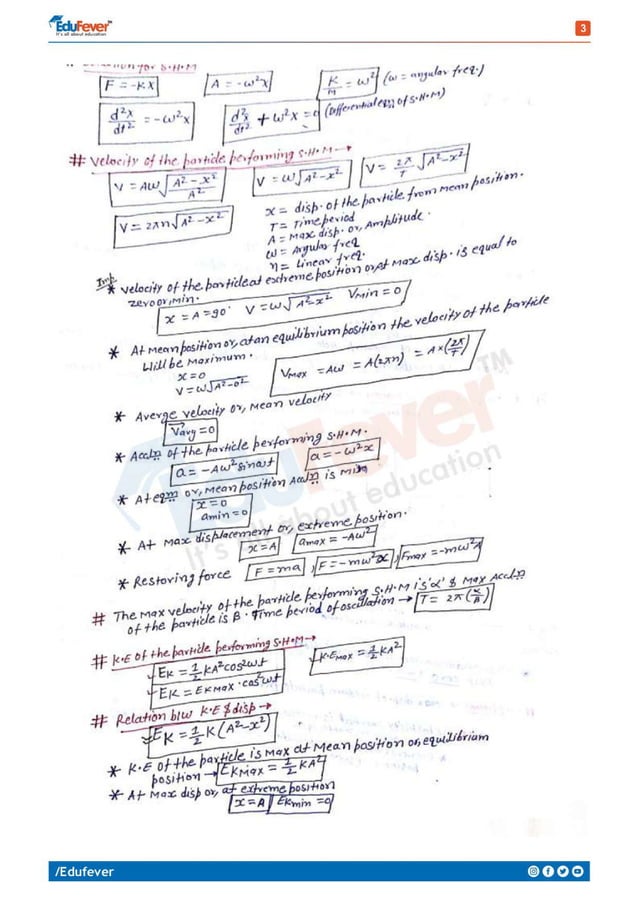 EduFever™
It's all about education
3
for S.H.M
F = -Kx
A = -ω²x
K/M = ω² (ω = angular freq.)
d²x/dt² = -ω²x
d²x/dt² + ω²x = 0 (Differential eqn of S.H.M)
# Velocity of the particle performing S.H.M →
V = Aω√(A² - x²/A²)
V = ω√A² - x²
V = 2π/T √A² - x²
V = 2πn√A² - x²
x = disp. of the particle from mean position.
T = Time period
A = Max disp. or, Amplitude.
ω = Angular freq
n = Linear freq.
Imp
* Velocity of the particle at extreme position or, At max disp. is equal to
zero or, min.
x = A = 90° V = ω√A² - x² Vmin = 0
* At mean position or, at an equilibrium position the velocity of the particle
will be maximum.
x = 0
V = ω√A² - 0²
Vmax = Aω = A(2πn) = A × (2π/T)
* Averge velocity or, mean velocity
Vavg = 0
* Accln of the particle performing S.H.M.
a = -Aω² sinωt
a = -ω²x
* At eqm or, mean position Accln is min
x = 0
amin = 0
* At max displacement or, extreme position.
x = A
amax = -Aω²
* Restoring force F = ma, F = -mω²x, Fmax = -mω²A
# The max velocity of the particle performing S.H.M is 'α' & max Accln
of the particle is β. Time period of oscillation → T = 2π(α/β)
# K.E of the particle performing S.H.M →
EK = 1/2 KA² cos²ωt
K.Emax = 1/2 KA²
EK = EKmax · cos²ωt
# Relation b/w K.E & disp →
EK = 1/2 K(A² - x²)
* K.E of the particle is max at mean position or, equilibrium
position → EKmax = 1/2 KA²
* At max disp or, at extreme position
x = A EKmin = 0
EduFever™
It's all about education
/Edufever